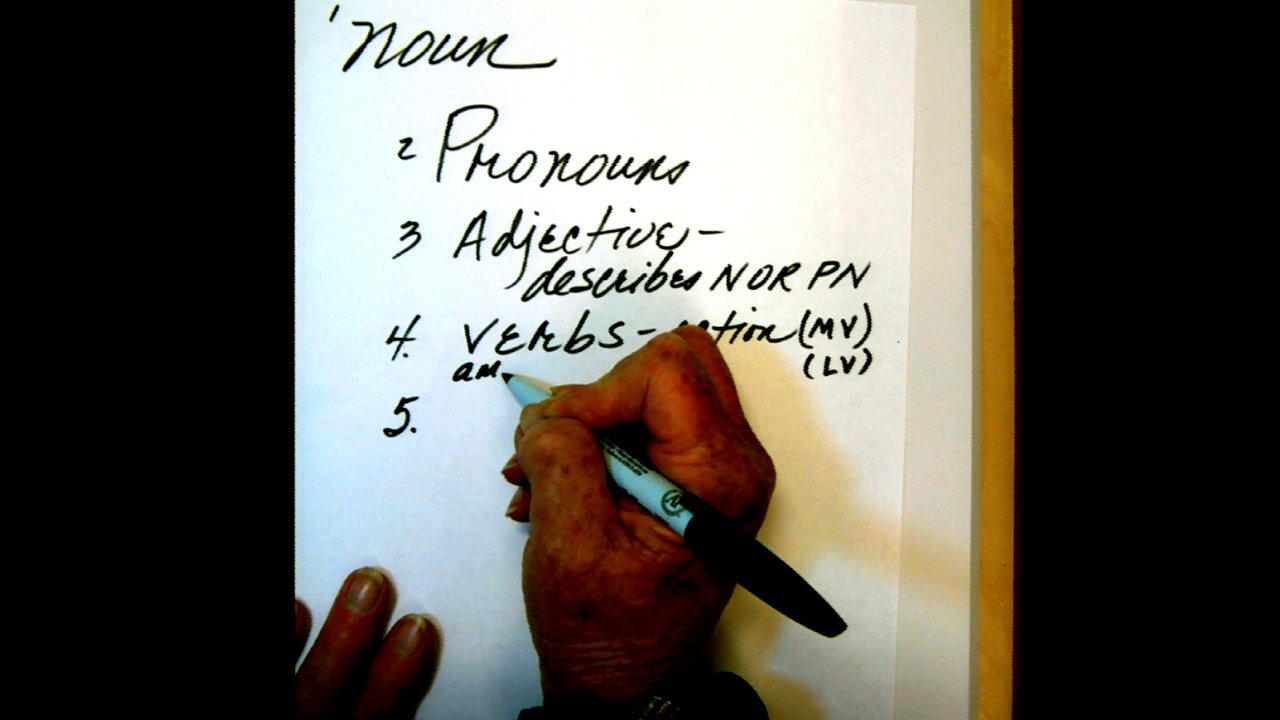 1 noun
2 Pronouns
3 Adjective -
describes N OR PN
4. Verbs - action (MV)
am (LV)
5.